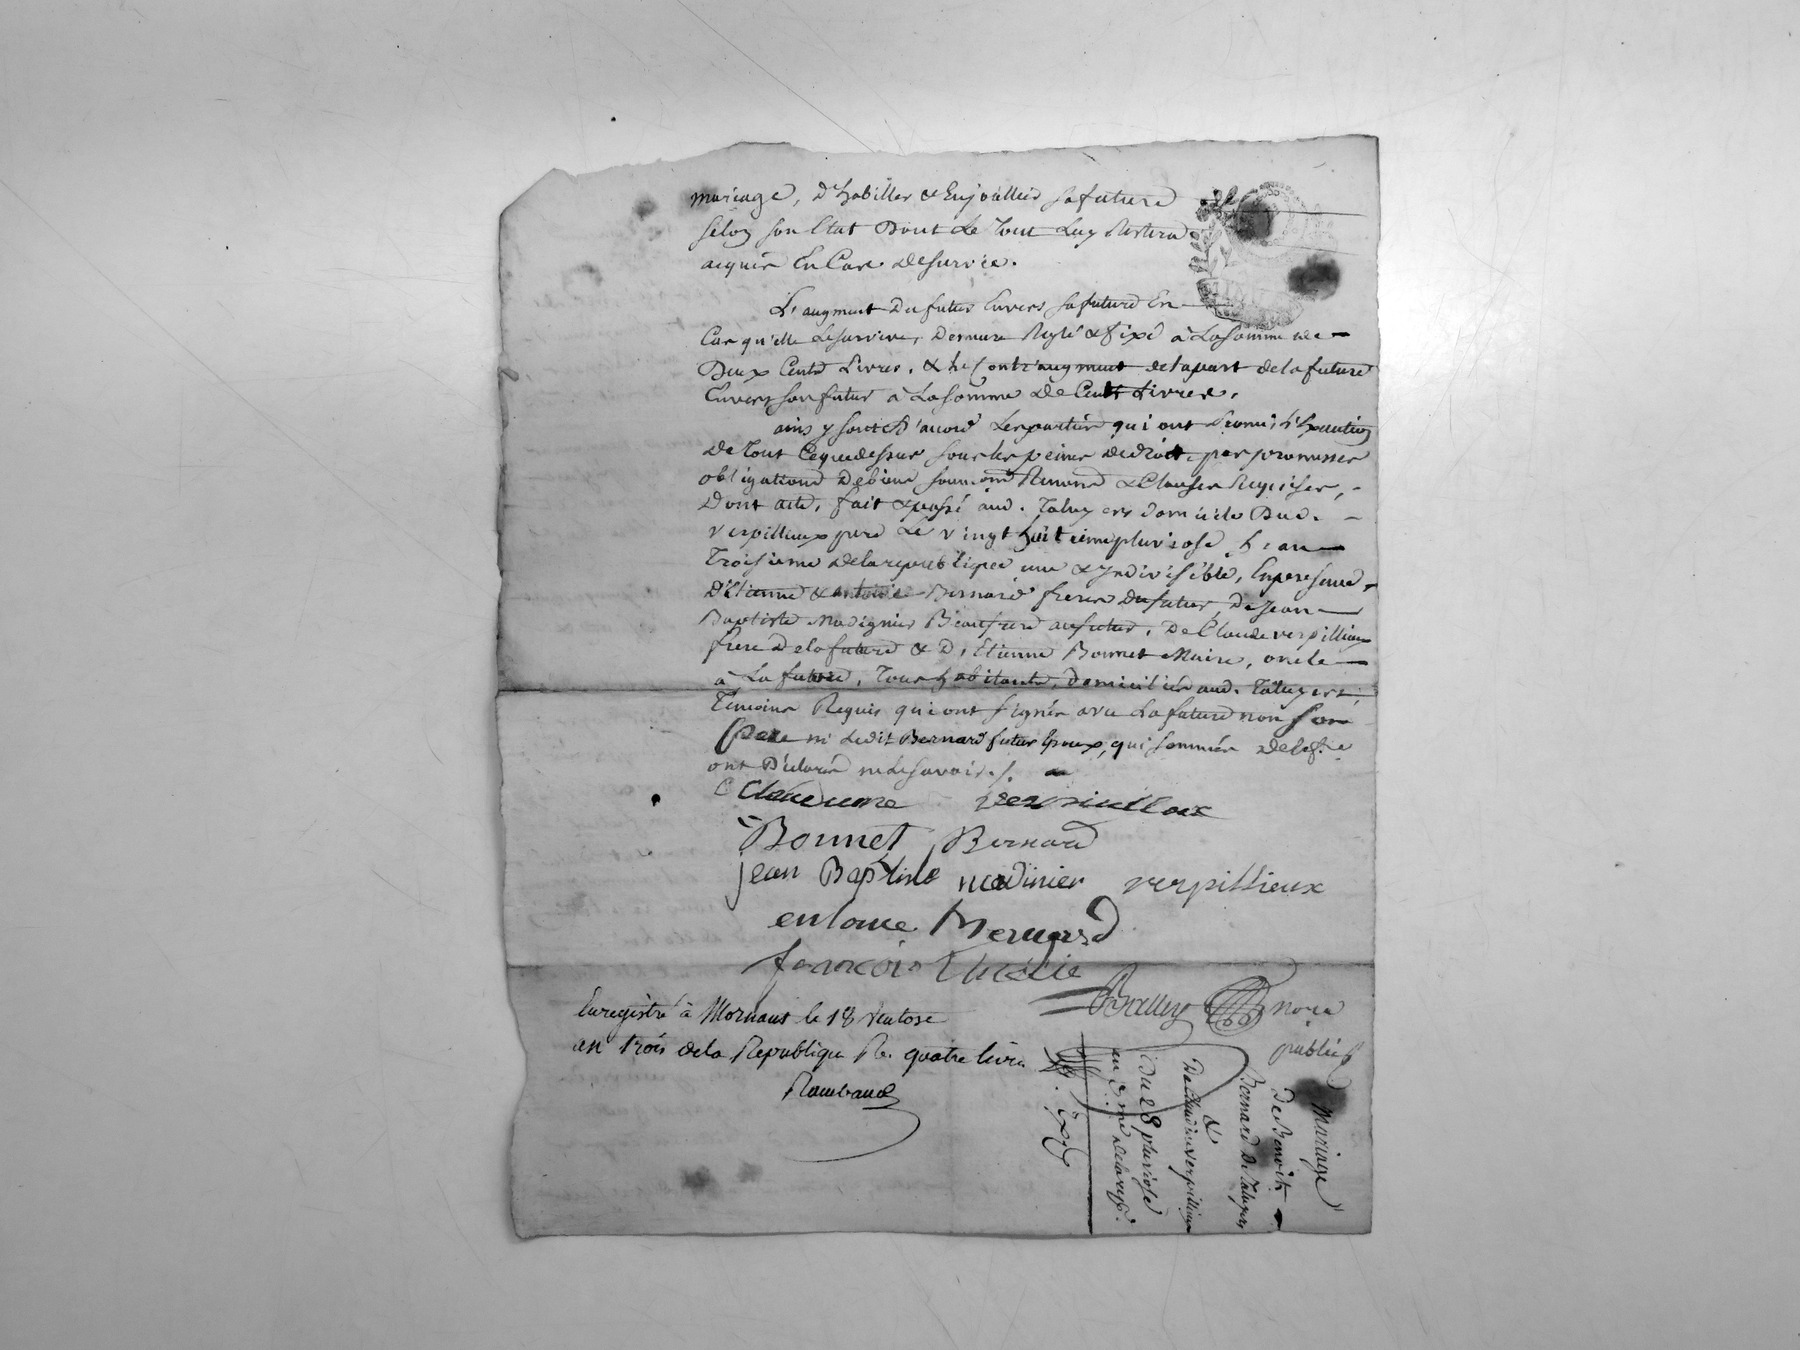 mariage, D'habiller & Enjoailler sa future
selon son Etat Dont Le Tout Luy Restera
acquis En Cas de survie.
L'augment Du futur Envers sa future En
Cas qu'elle Le survive, Demeure Reglé & fixé à La somme de
Deux Cents Livres, & Le Contr'augment de la part de la future
Envers son futur à La somme De Cents Livres.
ains y sont D'accord Les parties qui ont promis L'Execution
De Tout Ce que dessus sous les peines de droit, par promesses
obligations De biens soumions Renons & Clauses Requises,
Dont acte, fait & passé aud. Taluyers domicile Dud.
verpillieux pere Le vingt huitieme pluviose, L'an
Troisieme de la republique une & yndivisible, En presence
D'Etienne & antoine Bernard freres du futur, De Jean
Baptiste Madignier Beaufrere au futur, De Claude verpillieux
frere De la future & D'Etienne Bonnet Maire, oncle
à La future, Tous habitants, domiciliés aud. Taluyers,
Temoins Requis qui ont signés avec La future non son
pere ni Ledit Bernard futur Epoux, qui sommés de Le f.re
ont Déclaré ne Le savoir./.
Claudinne verpiulloux
E Bonnet Bernard
jean Baptiste madinier verpillieux
entoine Bernard
francois
Enregistré à Mornant le 18 Ventose
an trois de la Republique R. quatre livre
Raimbaud
Brelley
nore
public
Mariage
De Benoit
Bernard De Taluyers
&
De Claudine verpillieux
Du 28 pluviose
an 3.me de la rep.